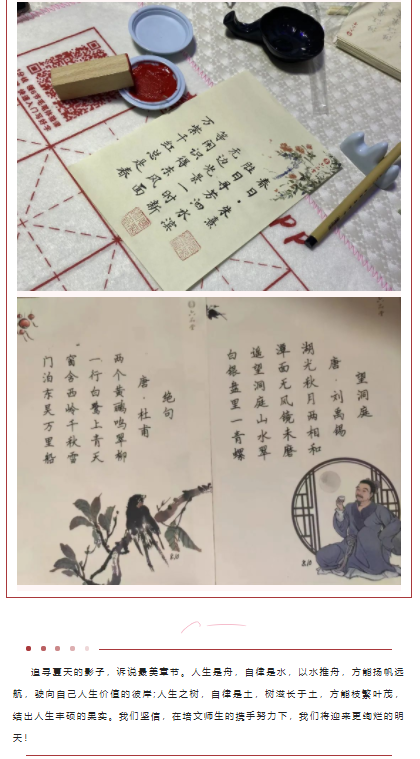 春日·朱熹
胜日寻芳泗水滨
无边光景一时新
等闲识得东风面
万紫千红总是春
望洞庭
唐·刘禹锡
湖光秋月两相和
潭面无风镜未磨
遥望洞庭山水翠
白银盘里一青螺
绝句
唐·杜甫
两个黄鹂鸣翠柳
一行白鹭上青天
窗含西岭千秋雪
门泊东吴万里船
追寻夏天的影子，诉说最美章节。人生是舟，自律是水，以水推舟，方能扬帆远
航，驶向自己人生价值的彼岸;人生之树，自律是土，树滋长于土，方能枝繁叶茂，
结出人生丰硕的果实。我们坚信，在培文师生的携手努力下，我们将迎来更绚烂的明
天！